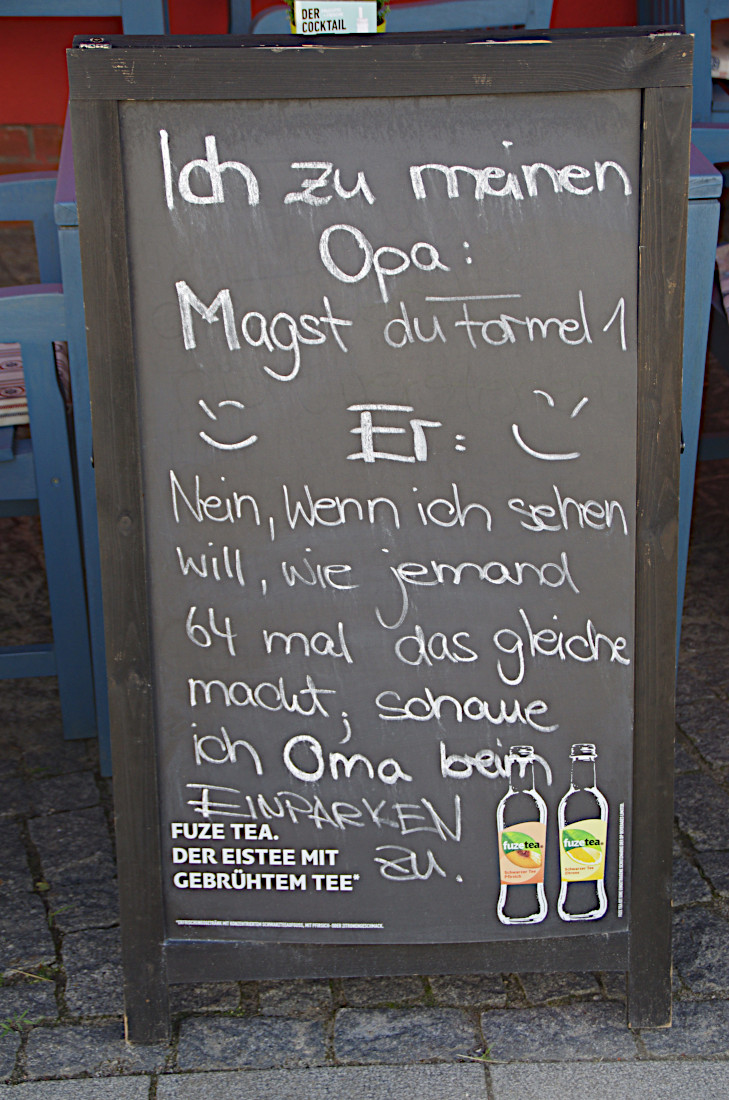 DER
COCKTAIL
Ich zu meinen
Opa:
Magst du Formel 1
Er:
Nein, Wenn ich sehen
will, wie jemand
64 mal das gleiche
macht, schaue
ich Oma beim
EINPARKEN
zu.
FUZE TEA.
DER EISTEE MIT
GEBRÜHTEM TEE*
fuzetea
Schwarzer Tee
Pfirsich
fuzetea
Schwarzer Tee
Zitrone